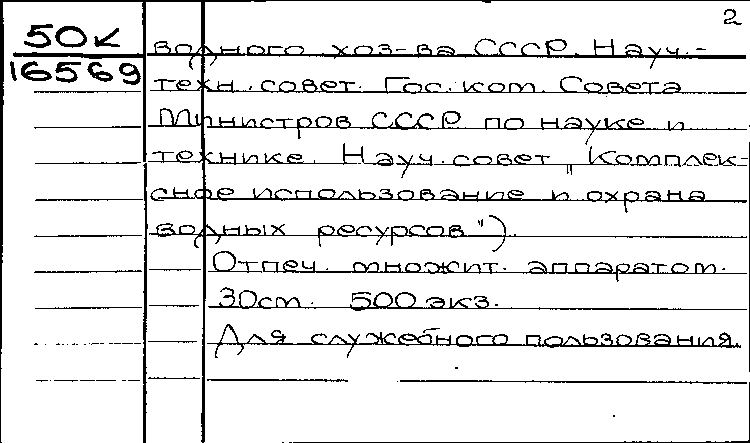 2
50к
16569
водного хоз-ва СССР. Науч.-
техн. совет. Гос. ком. Совета
Министров СССР по науке и
технике. Науч. совет „Комплек-
сное использование и охрана
водных ресурсов").
Отпеч. множит. аппаратом.
30см. 500 экз.
Для служебного пользования.